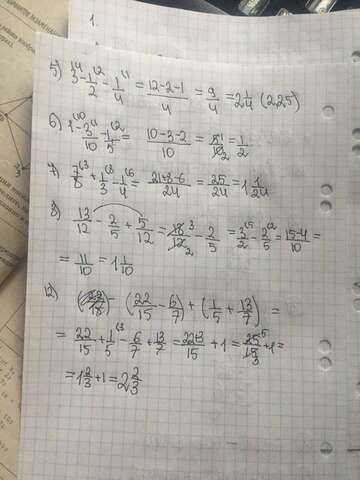 1.
5) 3 - 1/2 - 1/4 = (12-2-1)/4 = 9/4 = 2 1/4 (2.25)
6) 1 - 3/10 - 1/5 = (10-3-2)/10 = 5/10 = 1/2
7) 7/8 + 1/3 - 1/4 = (21+8-6)/24 = 25/24 = 1 1/24
8) 13/12 - 2/5 + 5/12 = 18/12 - 2/5 = 3/2 - 2/5 = (15-4)/10 =
= 11/10 = 1 1/10
12) (22/15 - 6/7) + (1/5 + 13/7) =
= 22/15 + 1/5 - 6/7 + 13/7 = (22+3)/15 + 1 = 25/15 + 1 =
= 1 2/3 + 1 = 2 2/3